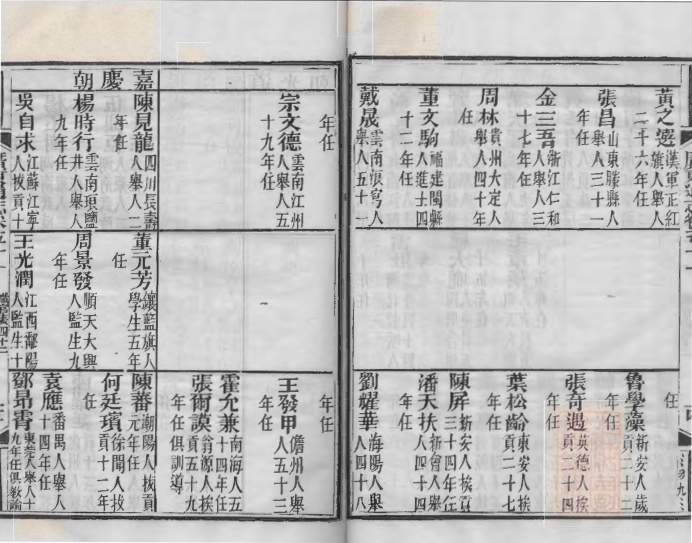 黃之遴漢軍正紅旗人舉人
二十六年任
張昌山東滕縣人舉人三十一
年任
金三吾浙江仁和人舉人三
十七年任
周林貴州大定人舉人四十年
任
董文駒福建閩縣人進士四
十二年任
戴晟雲南浪穹人舉人五十一
任
魯學藻新安人歲貢二十二
年任
張奇遇英德人挨貢二十四
年任
葉松齡東安人挨貢二十七
年任
陳屏新安人挨貢三十四年任
潘天扶新會人舉人四十四
年任
劉耀華海陽人舉人四十八
年任
宗文德雲南江川人舉人五
十九年任
王發甲儋州人舉人五十三
年任
霍允兼南海人五十四年任
張爾謨翁源人挨貢五十九
年任俱訓導
嘉慶朝
陳見龍四川長壽人舉人二
年任
楊時行雲南琅鹽井人舉人
九年任
吳自求江蘇江寧人拔貢十
董元芳鑲藍旗人學生五年
任
周景發順天大興人監生九
年任
王光潤江西鄱陽人監生十
陳蕃潮陽人拔貢元年任
何廷璸徐聞人拔貢十二年
任
袁應番禺人舉人十四年任
鄧昂霄東莞人舉人十九年任俱教諭